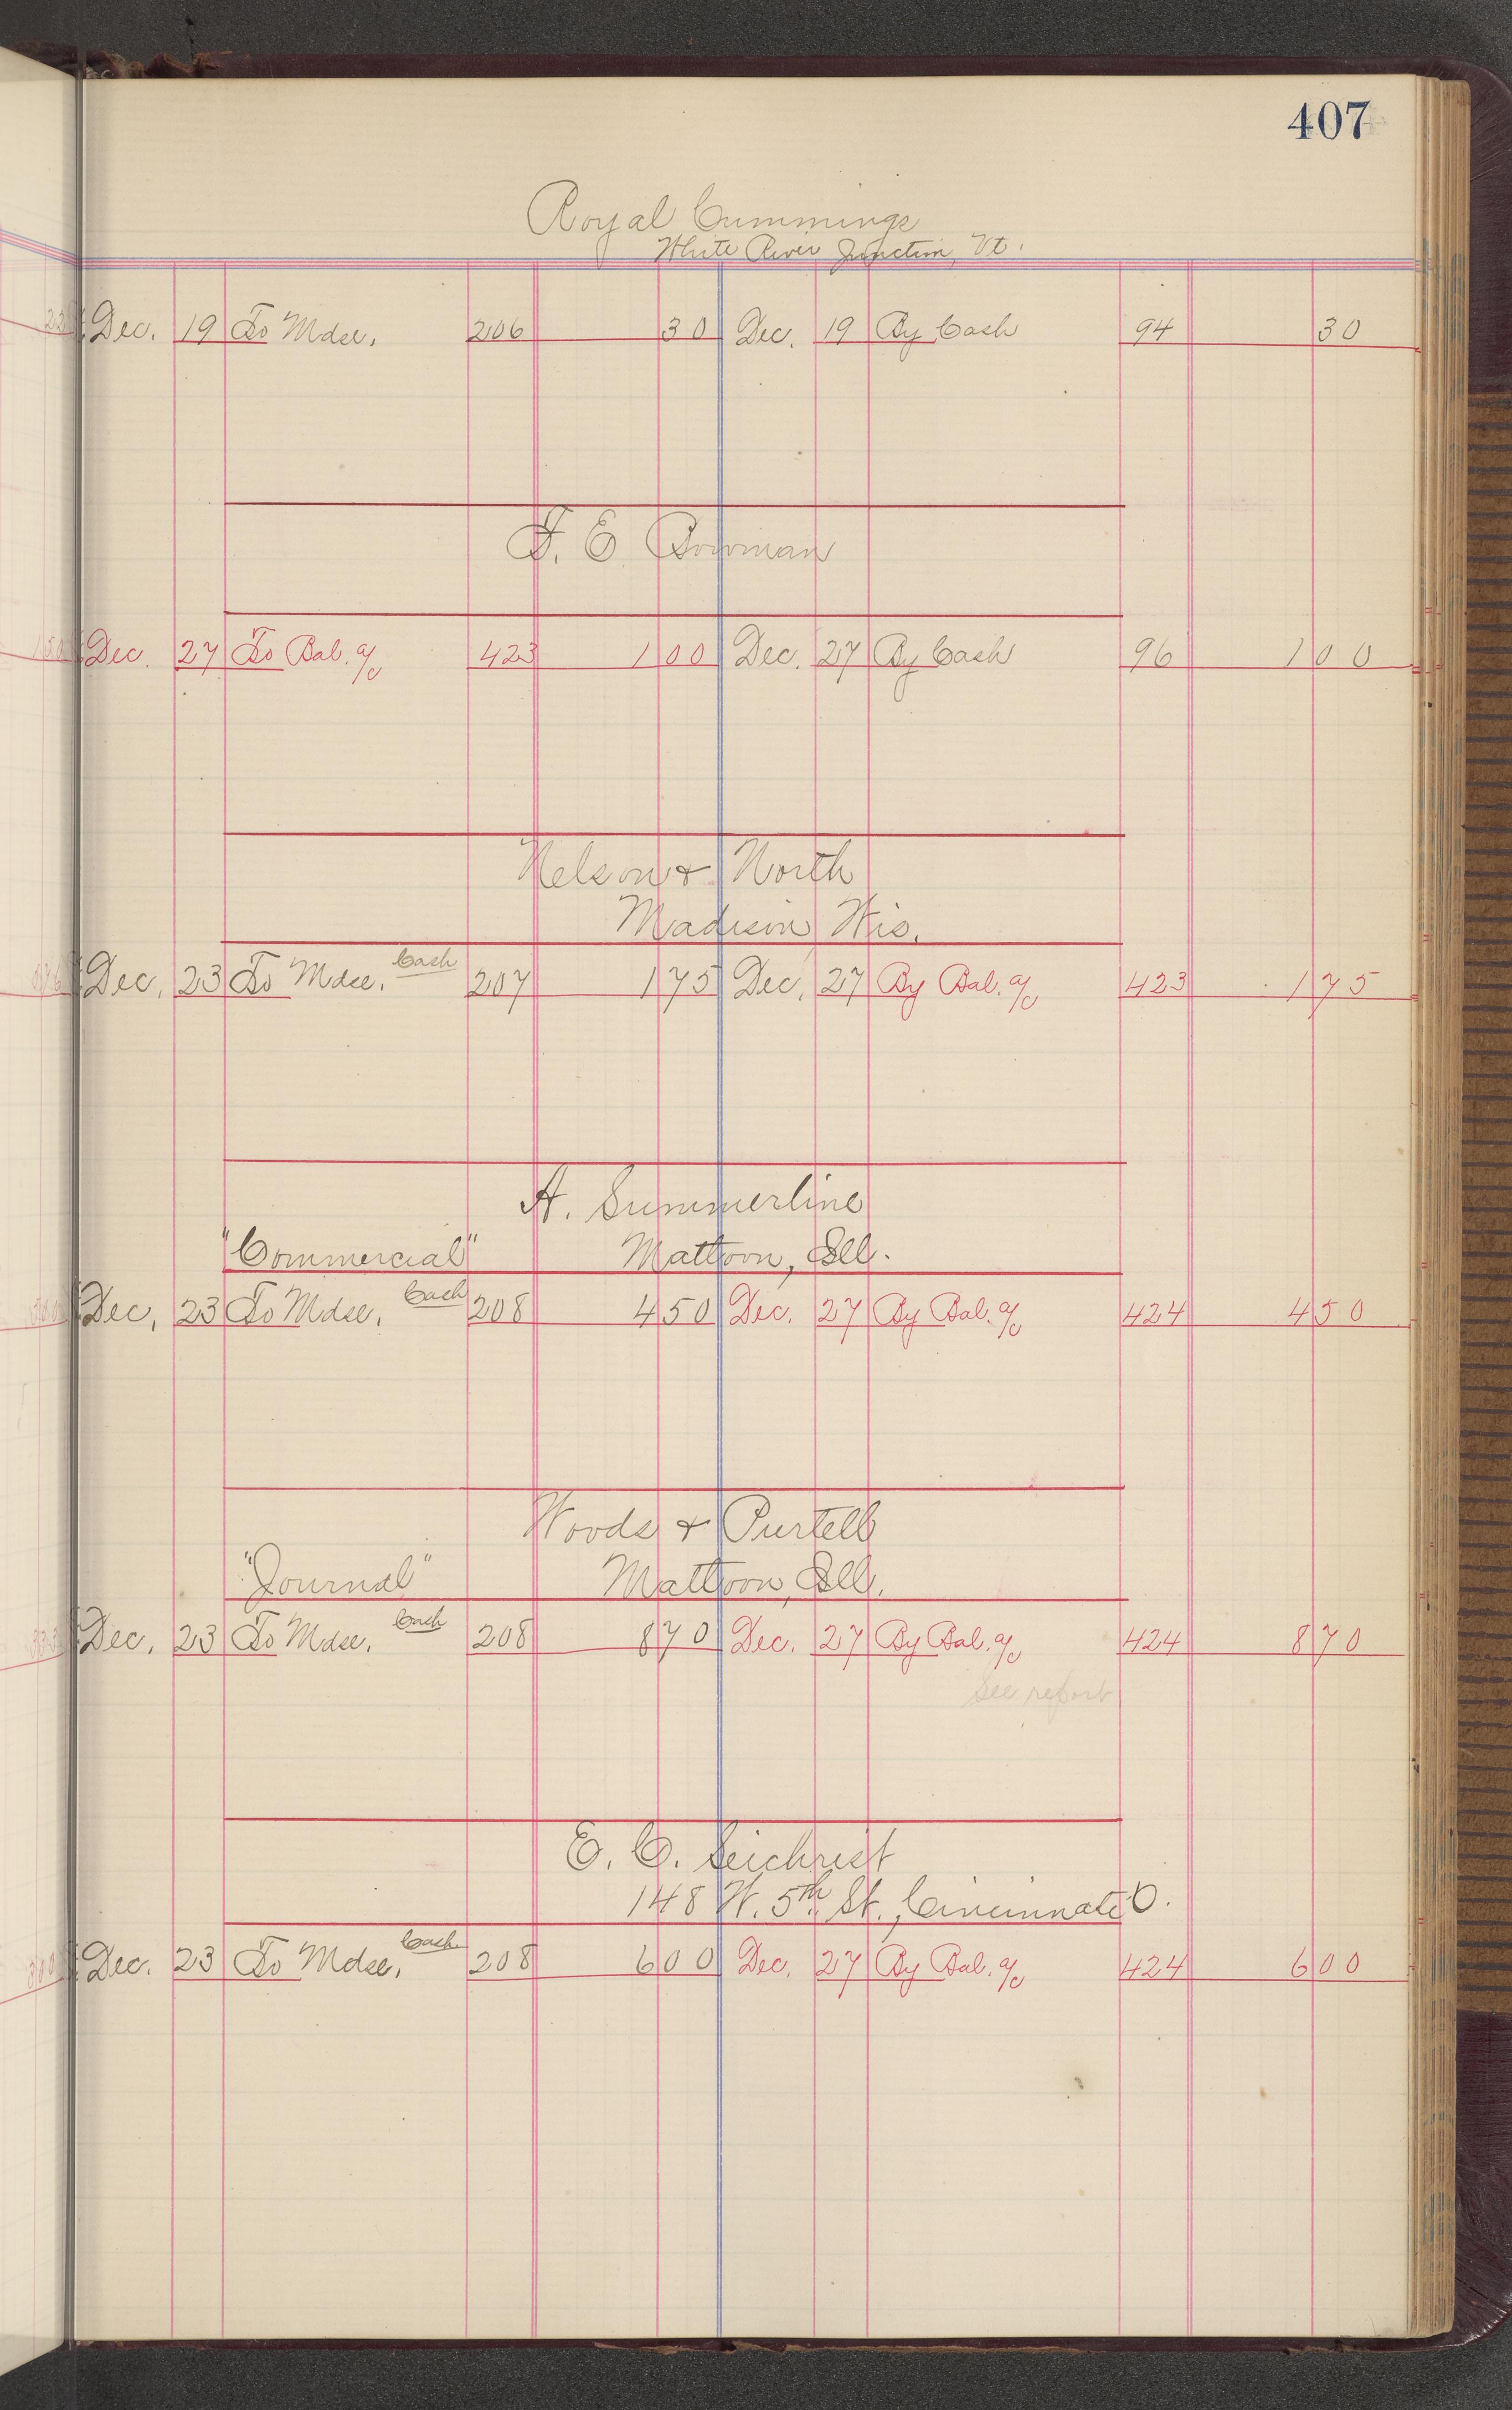 407
Royal Cummings
White River Junction, Vt.
Dec. 19 To Mdse. 206 30 Dec. 19 By Cash 94 30
F. E. Bowman
Dec. 27 To Bal. a/c 423 1 00 Dec. 27 By Cash 96 1 00
Nelson & North
Madison Wis.
Dec. 23 To Mdse. Cash 207 1 75 Dec. 27 By Bal. a/c 423 1 75
A. Summerline
"Commercial" Mattoon, Ill.
Dec. 23 To Mdse. Cash 208 4 50 Dec. 27 By Bal. a/c 424 4 50
Woods & Purtell
"Journal" Mattoon, Ill.
Dec. 23 To Mdse. Cash 208 8 70 Dec. 27 By Bal. a/c 424 8 70
See report
E. C. Seichrist
148 W. 5th St., Cincinnati O.
Dec. 23 To Mdse. Cash 208 6 00 Dec. 27 By Bal. a/c 424 6 00